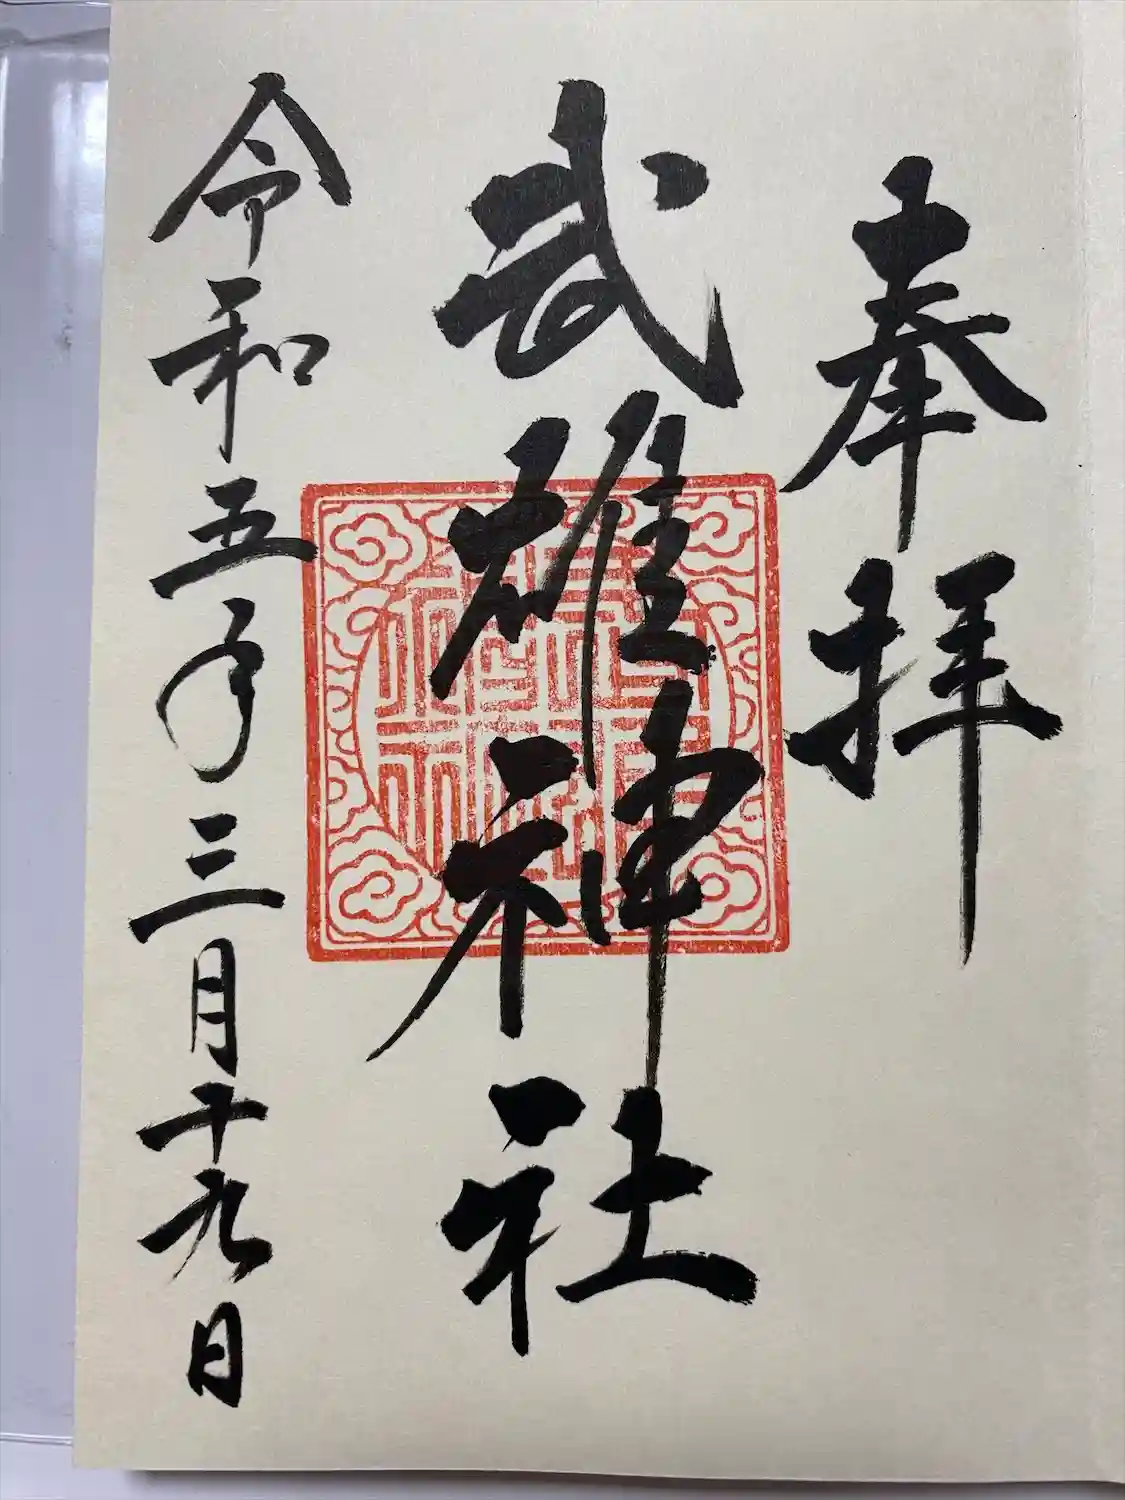 奉拝
武雄神社
令和五年三月十九日